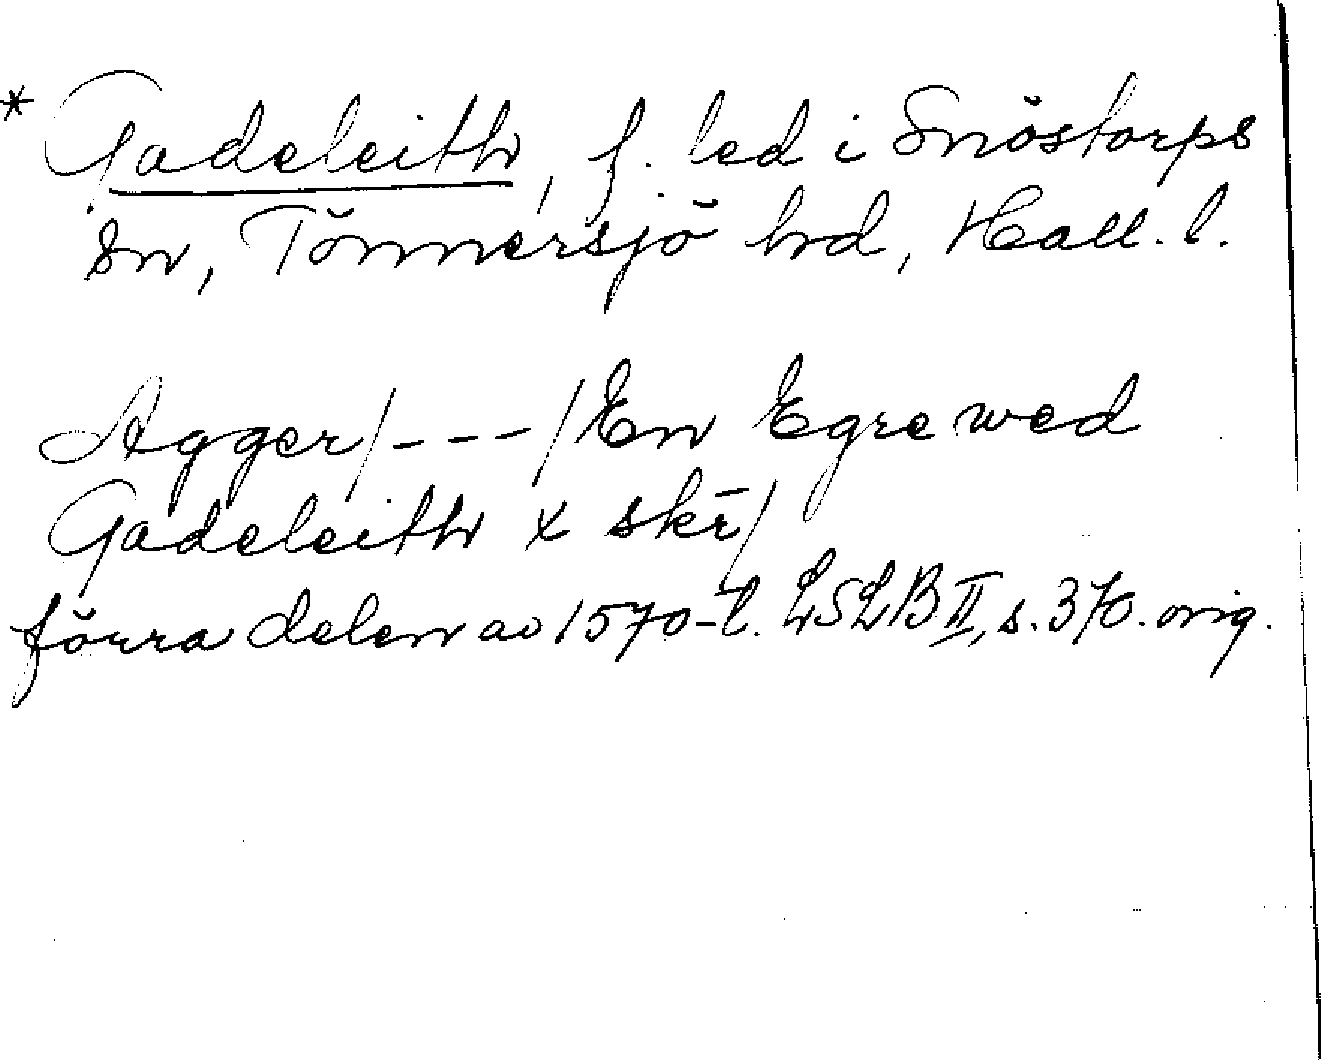 * Gadeleith, f. led i Snöstorps
sn, Tönnersjö hd, Hall. l.
Agger/---/En Egre wed
Gadeleith x skr̄/
förra delen av 1570-t. LSLB II, s. 370. orig.